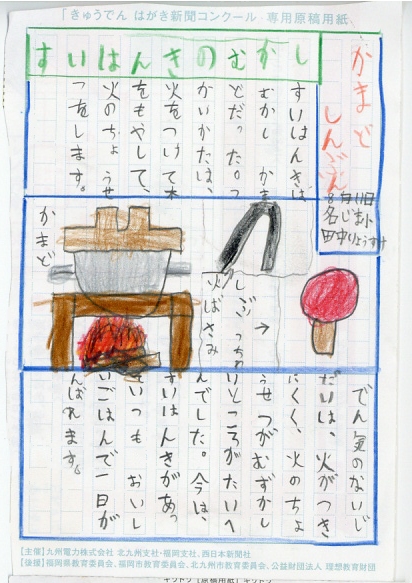 「きゅうでん はがき新聞コンクール」専用原稿用紙
かまど
しんぶん
8月11日
名じま小
田中りょうすけ
すいはんきのむかし
すいはんきは、
むかし かま
どだった。つ
かいかたは、
火をつけて木
をもやして、
火のちょうせ
つをします。
火ばさみ
かまど
でん気のないじ
だいは、火がつき
にくく、火のちょ
うせつがむずかし
いところがたいへ
んでした。今は、
すいはんきがあっ
いつも おいし
いごはんで一日が
んばれます。
【主催】九州電力株式会社 北九州支社・福岡支社、西日本新聞社
【後援】福岡県教育委員会、福岡市教育委員会、北九州市教育委員会、公益財団法人 理想教育財団